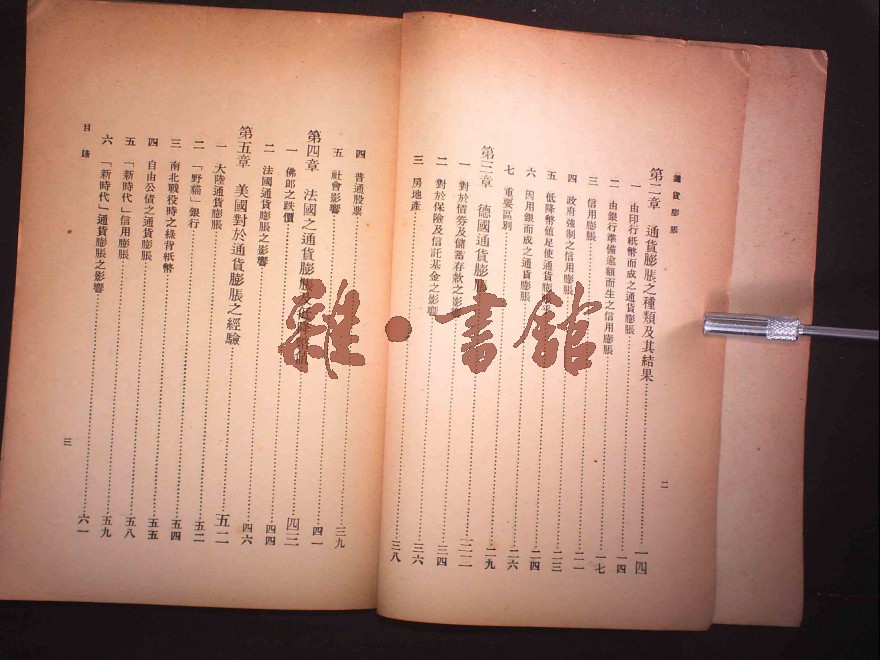 通貨膨脹
第二章 通貨膨脹之種類及其結果……一四
一 由印行紙幣而成之通貨膨脹……一四
二 由銀行準備逾額而生之信用膨脹……一七
三 信用膨脹……二一
四 政府強制之信用膨脹……二三
五 低降幣值足使通貨膨脹……二四
六 因用銀而成之通貨膨脹……二六
七 重要區別……二九
第三章 德國通貨膨脹……三二
一 對於債券及儲蓄存款之影響……三四
二 對於保險及信託基金之影響……三六
三 房地產……三八
二
四 普通股票……三九
五 社會影響……四一
第四章 法國之通貨膨脹及……四三
一 佛郎之跌價……四四
二 法國通貨膨脹之影響……四六
第五章 美國對於通貨膨脹之經驗……五二
一 大陸通貨膨脹……五二
二 「野貓」銀行……五四
三 南北戰役時之綠背紙幣……五五
四 自由公債之通貨膨脹……五八
五 「新時代」信用膨脹……五九
六 「新時代」通貨膨脹之影響……六一
目錄
三
雜·書館